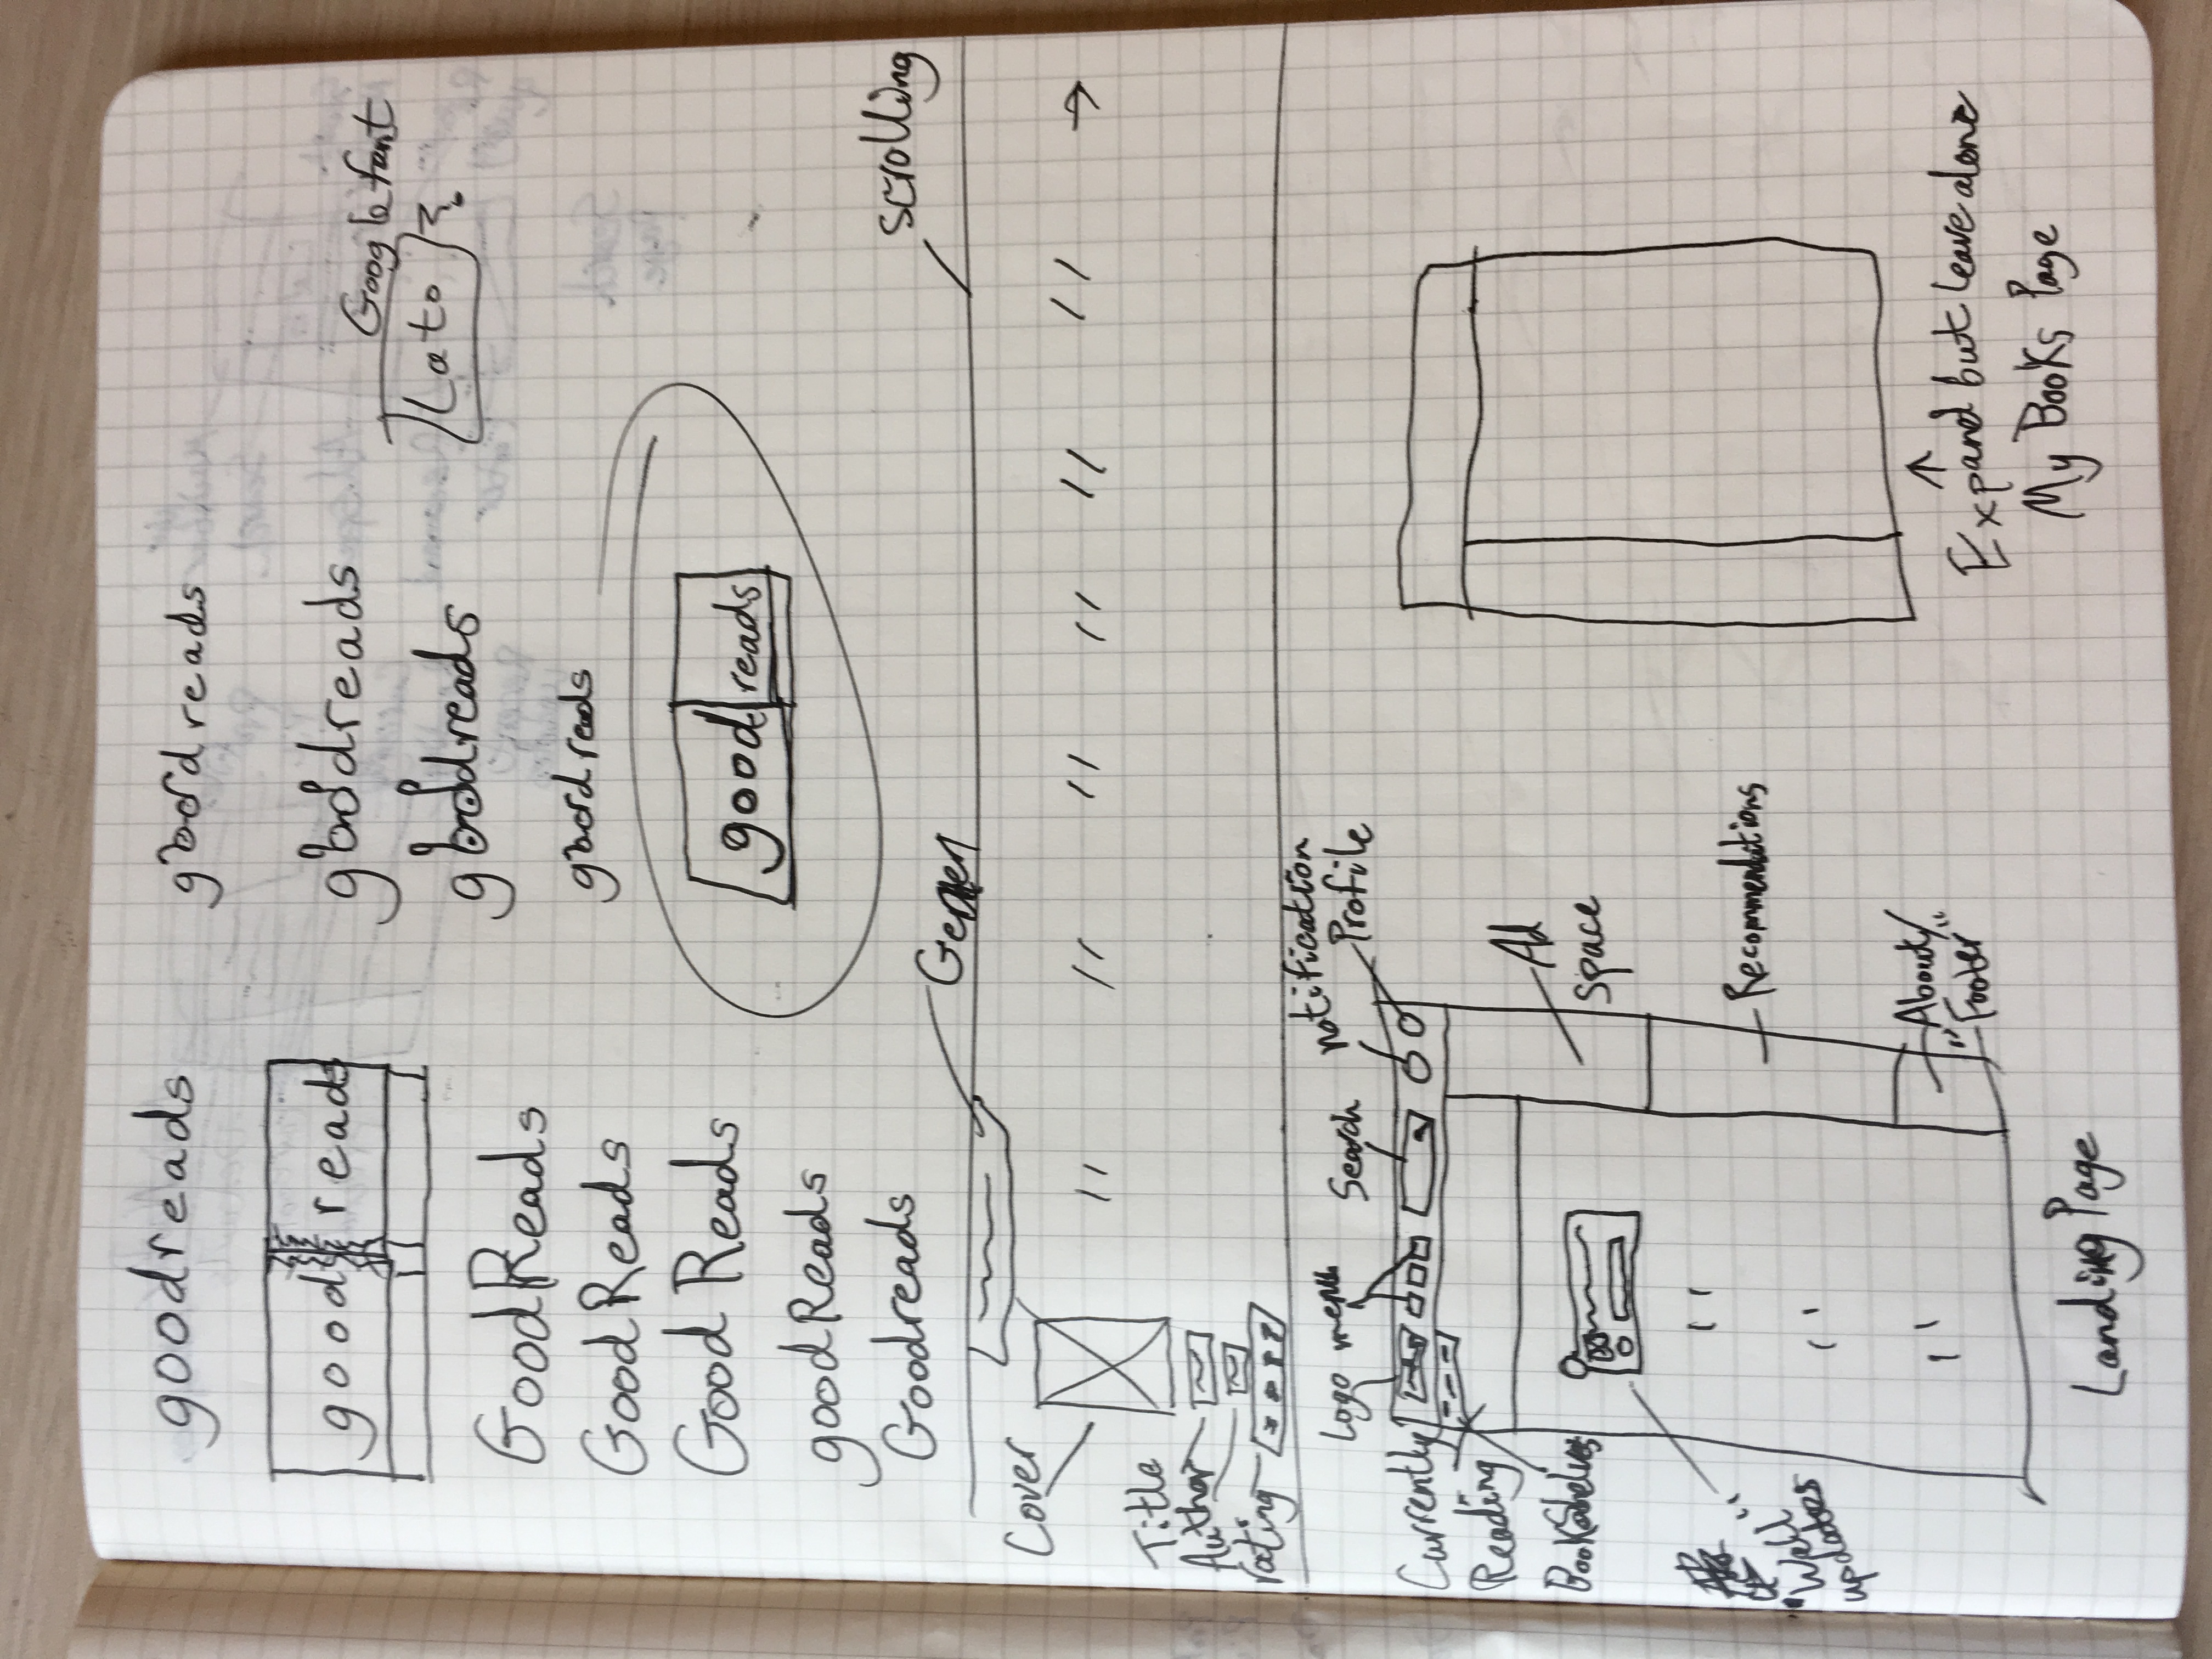 goodreads
good reads
GoodReads
GoodReads
Good Reads
goodReads
Goodreads
goodreads
goodreads
goodreads
goodreads
good reads
Google font
Lato?
scrolling
Cover
Title
Author
rating
Logo
menu
Search
notification
Profile
Currently
Reading
BookShelves
Ad
Space
"Wall"
updates
Recommendations
About/
"Footer"
Landing Page
Expand but leave alone
My Books Page